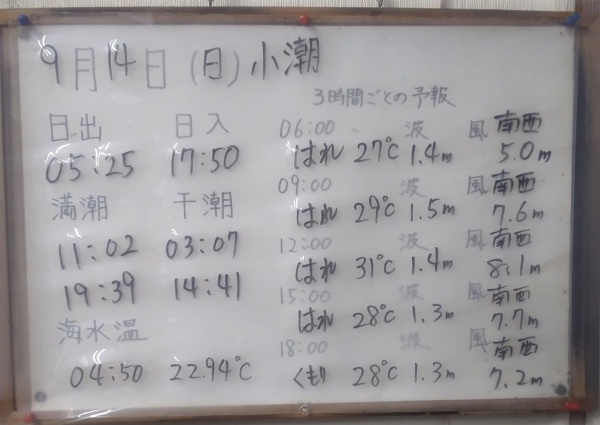 9月14日(日)小潮
3時間ごとの予報
日出 日入
05:25 17:50
満潮 干潮
11:02 03:07
19:39 14:41
海水温
04:50 22.94℃
06:00 波 風 南西
はれ 27℃ 1.4m 5.0m
09:00 波 風 南西
はれ 29℃ 1.5m 7.6m
12:00 波 風 南西
はれ 31℃ 1.4m 8.1m
15:00 波 風 南西
はれ 28℃ 1.3m 7.7m
18:00 波 風 南西
くもり 28℃ 1.3m 7.2m